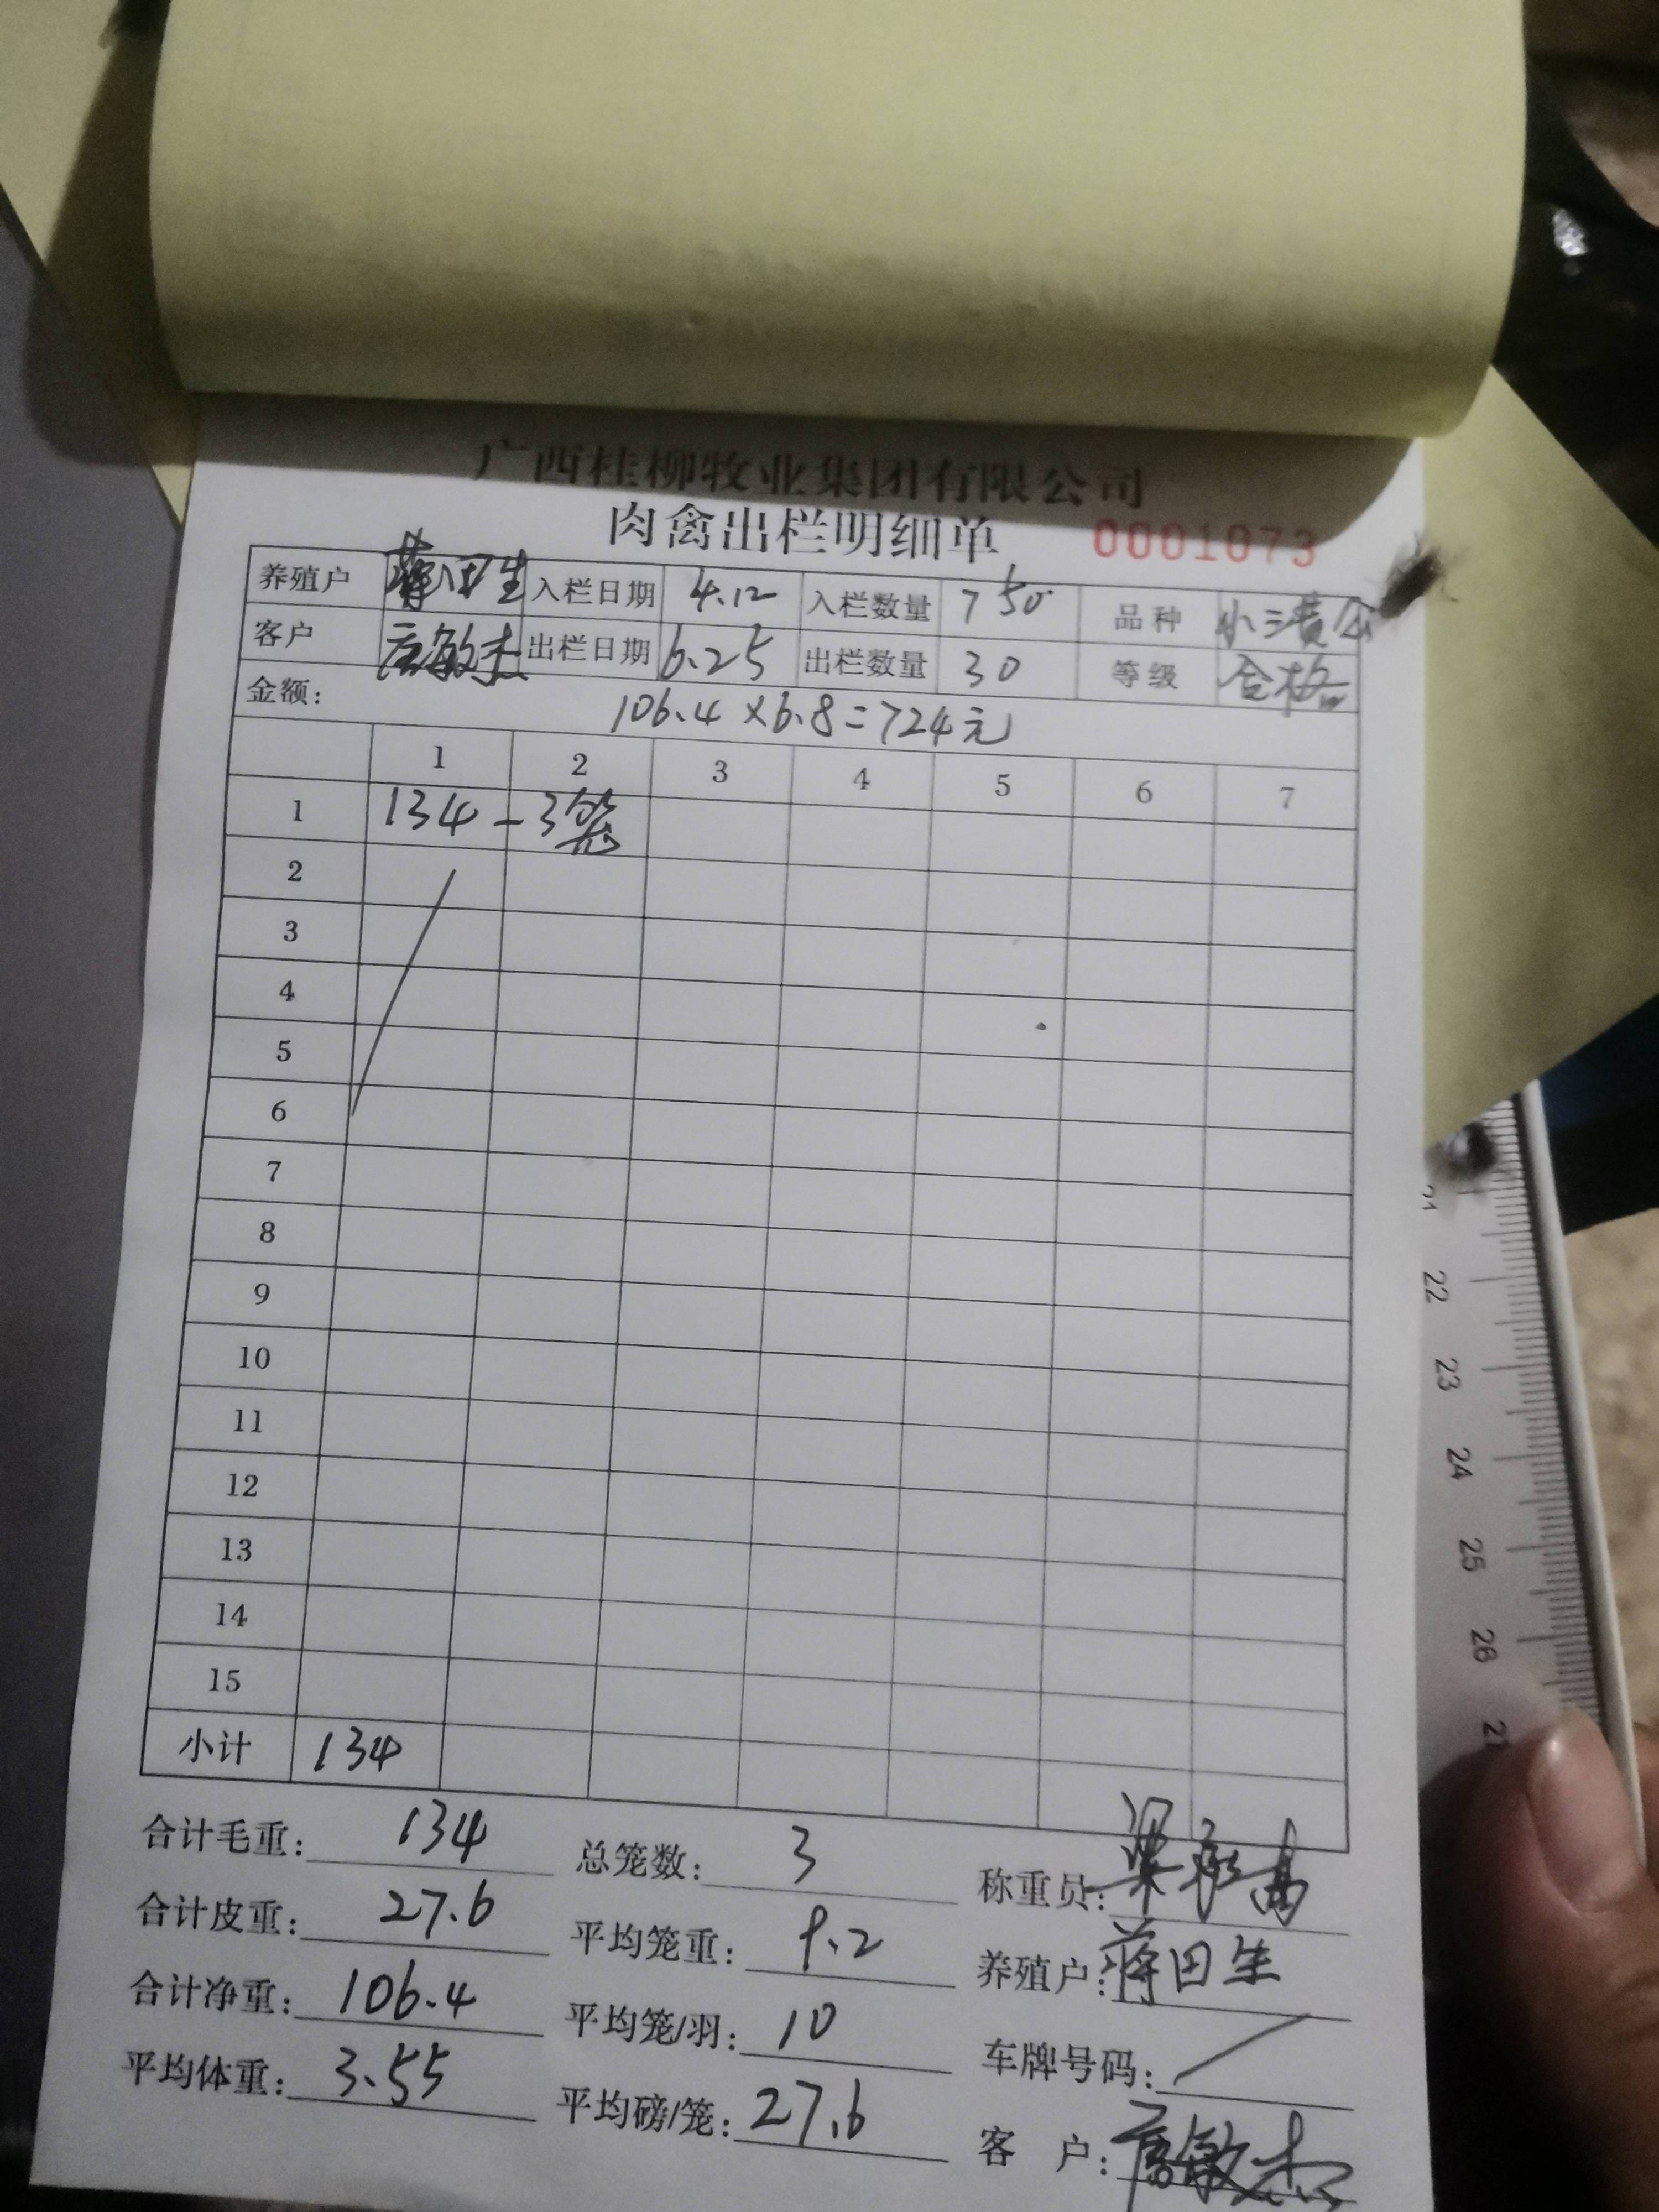 广西桂柳牧业集团有限公司
肉禽出栏明细单 0001073
养殖户 蒋田生 入栏日期 4.12 入栏数量 750 品种 小三黄公
客户 唐敏杰 出栏日期 6.25 出栏数量 30 等级 合格
金额: 106.4×6.8=724元
1 2 3 4 5 6 7
1 134-3笼
2
3
4
5
6
7
8
9
10
11
12
13
14
15
小计 134
合计毛重: 134 总笼数: 3 称重员:
合计皮重: 27.6 平均笼重: 9.2 养殖户: 蒋田生
合计净重: 106.4 平均笼/羽: 10 车牌号码: /
平均体重: 3.55 平均磅/笼: 27.6 客 户: 唐敏杰
21
22
23
24
25
26
27